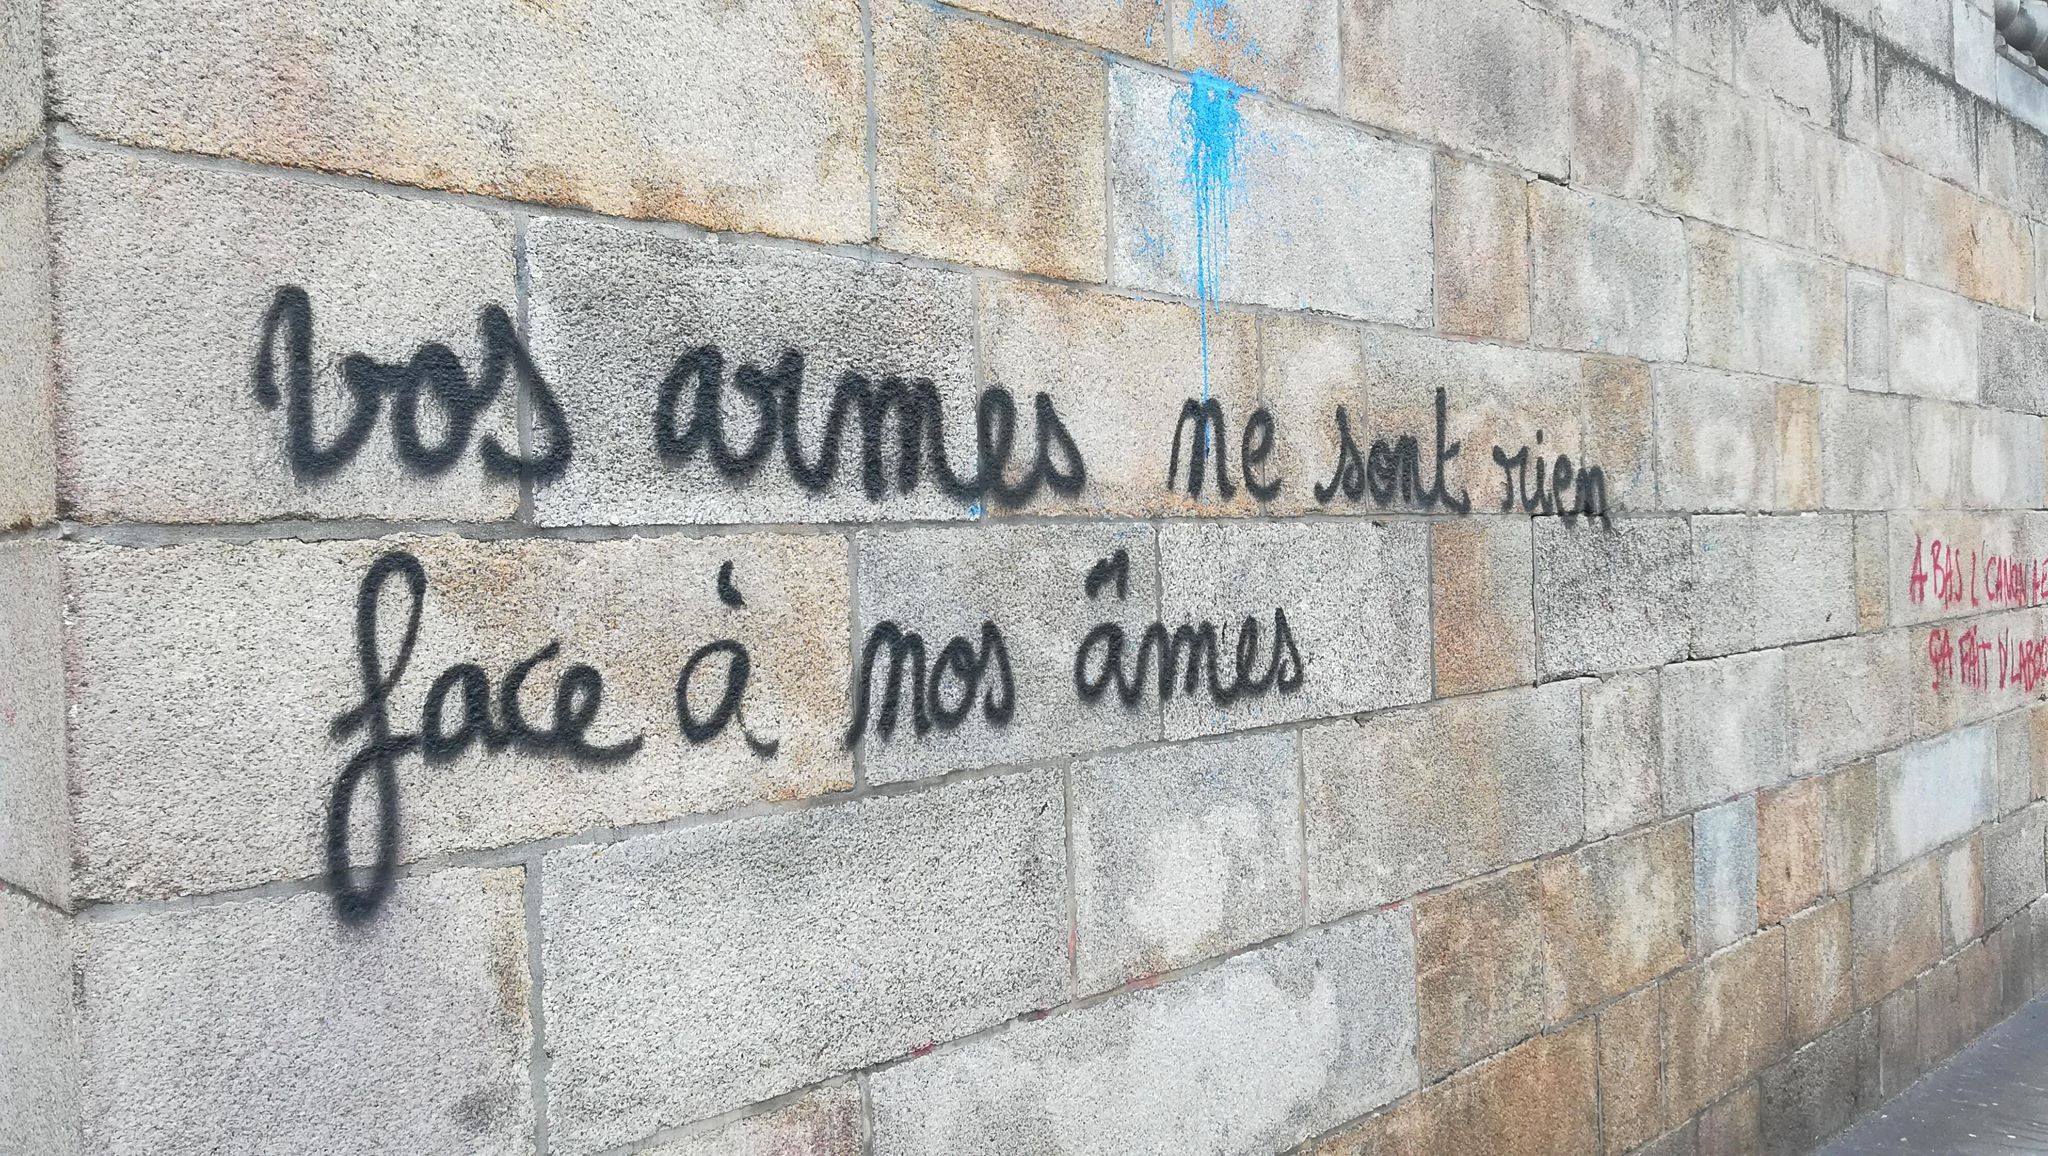 vos armes ne sont rien
face à nos âmes
A BAS L'CANON
ÇA FAIT D'